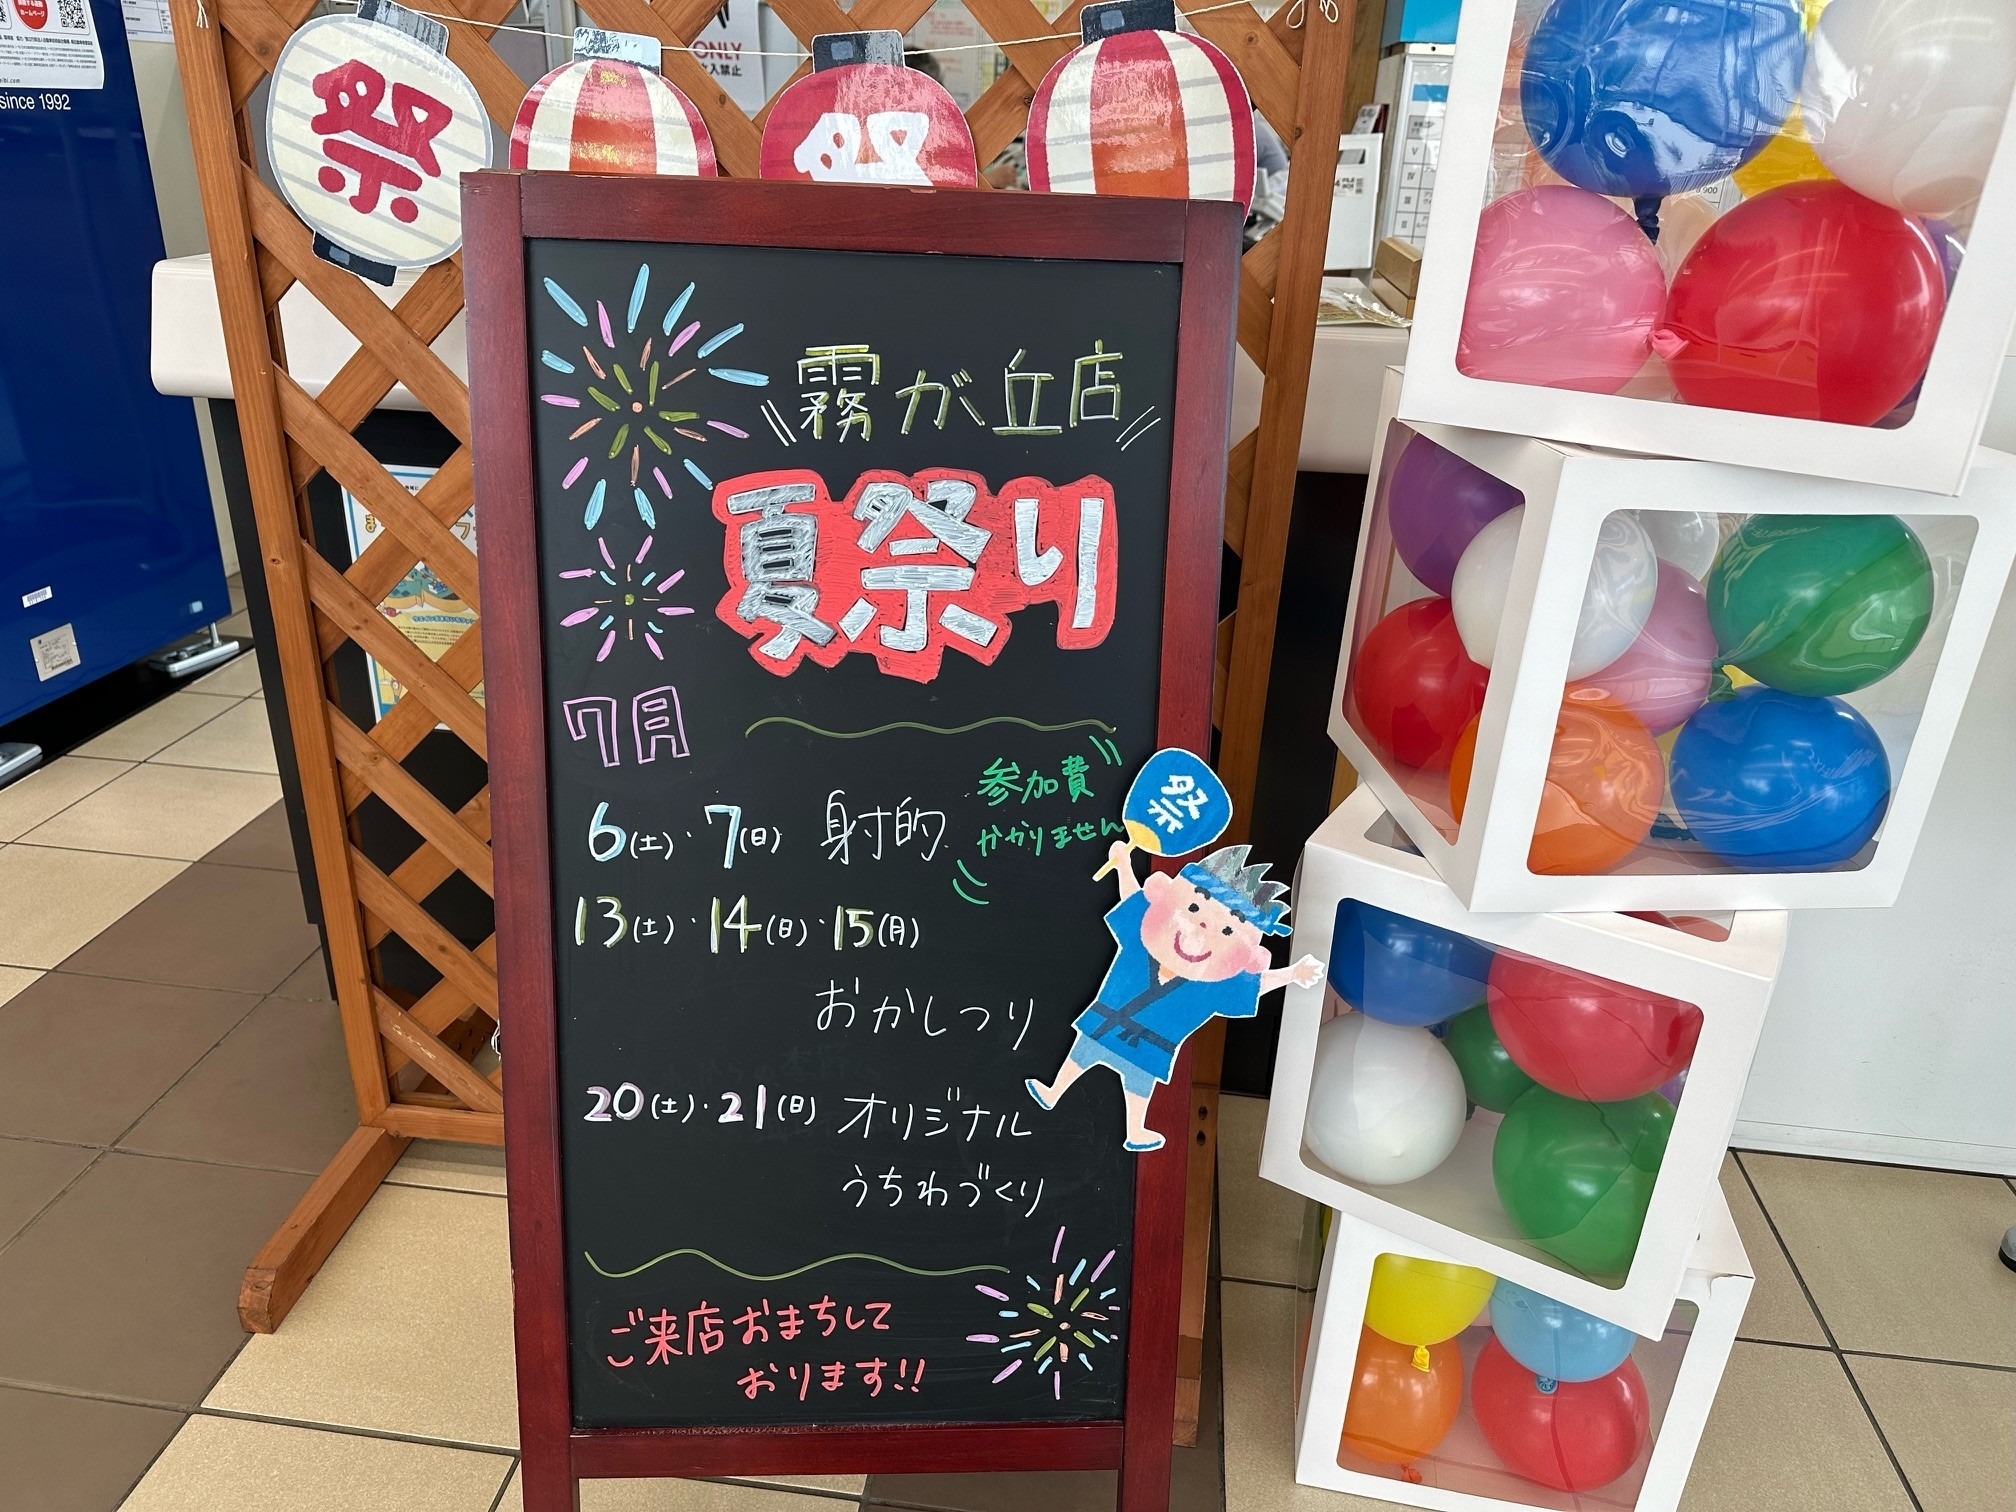 since 1992
ONLY
祭
祭
霧が丘店
夏祭り
7月
参加費
かかりません
祭
6(土)・7(日) 射的
13(土)・14(日)・15(月)
おかしつり
20(土)・21(日) オリジナル
うちわづくり
ご来店おまちして
おります!!